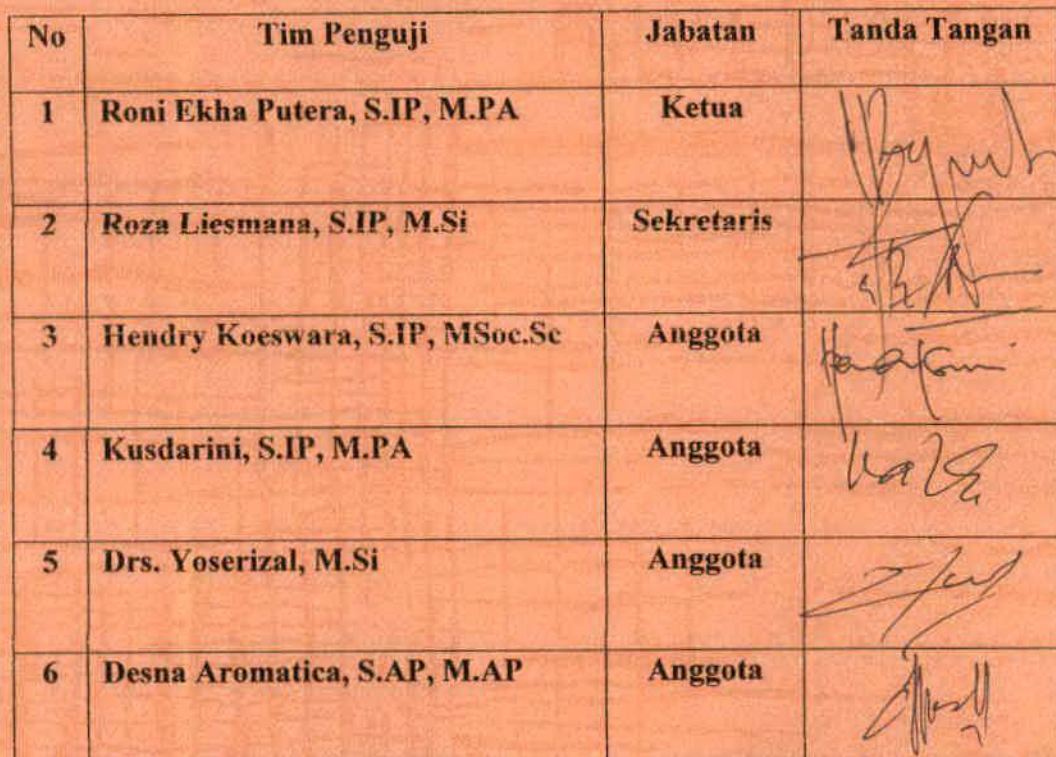 No Tim Penguji Jabatan Tanda Tangan
1 Roni Ekha Putera, S.IP, M.PA Ketua
2 Roza Liesmana, S.IP, M.Si Sekretaris
3 Hendry Koeswara, S.IP, MSoc.Sc Anggota
4 Kusdarini, S.IP, M.PA Anggota
5 Drs. Yoserizal, M.Si Anggota
6 Desna Aromatica, S.AP, M.AP Anggota